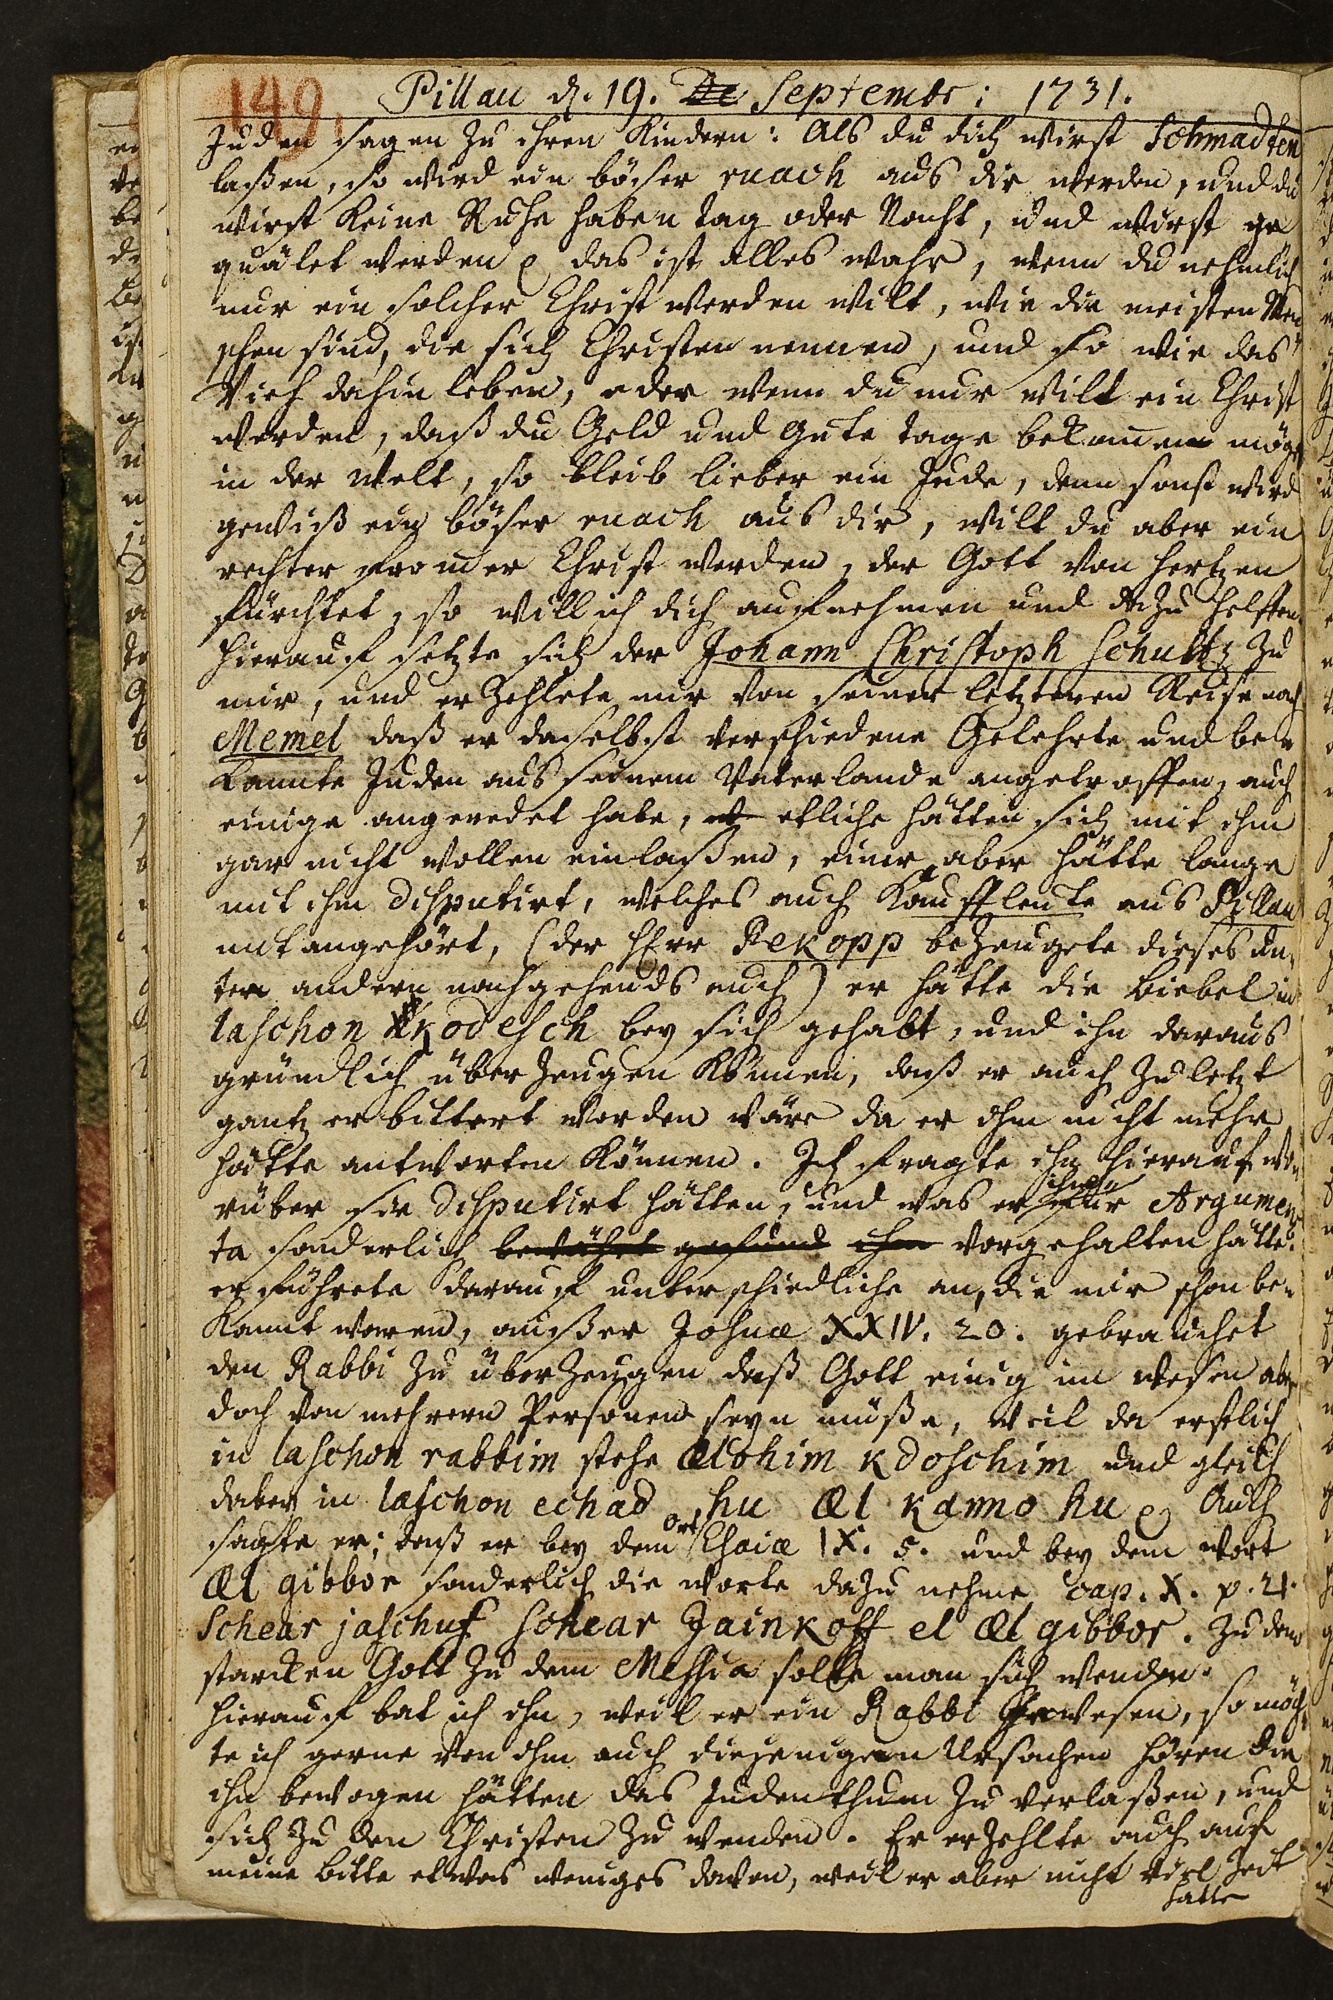 149.
Pillau d. 19. De Septembr: 1731.
Juden sagen zu ihren Kindern: Als du dich wirst Schmadten
laßen, so wird ein böser ruach aus dir werden, und du
wirst keine Ruhe haben tag oder Nacht, und wirst ge
quälet werden das ist alles wahr, wenn du nehmlich
nur ein solcher Christ werden wilt, wie die meisten Men
schen sind, die sich Christen nennen, und so wie das
Vieh dahin leben, oder wenn du nur wilt ein Christ
werden, daß du Geld und gute tage bekommen mögst
in der Welt, so bleib lieber ein Jude, denn sonst wird
gewiß ein böser ruach aus dir, wilt du aber ein
rechter frommer Christ werden, der Gott von Hertzen
fürchtet, so will ich dich aufnehmen und dazu helffen.
Hierauf setzte sich der Johann Christoph Schultz zu
mir, und erzehlete mir von seiner letzteren Reise nach
Memel daß er daselbst verschiedene Gelehrte und be-
kannte Juden aus seinem Vaterlande angetroffen, auch
einige angeredet habe, etliche hätten sich mit ihm
gar nicht wollen einlaßen, einer aber hätte lange
mit ihm disputirt, welches auch Kauffleute aus Pillau
mit angehört, (der Herr Pekopp bezeugete dieses un-
ter andern nachgehends auch) er hätte die Biebel in
laschon kodesch bey sich gehabt, und ihn daraus
gründlich überzeugen können, daß er auch zuletzt
gantz erbittert worden wäre da er ihm nicht mehr
hätte antworten können. Ich fragte ihn hierauf wo
rüber sie disputirt hätten, und was er ihm für Argumen
ta sonderlich bewährt gefund ihm vorgehalten hätte.
er führete darauf unterschiedliche an, die mir schon be-
kannt waren, außer Josuæ XXIV. 20. gebrauchet
den Rabbi zu überzeugen daß Gott einig im Wesen aber
doch von mehrern Personen seyn müße, weil da erstlich
in laschon rabbim stehe ælohim kdoschim und gleich
dabey in laschon echad hu æl kanno hu Auch
sagte er; daß er bey dem ort Esaiæ IX. 5. und bey dem wort
æl gibbor sonderlich die Worte dazu nehme cap. X. v. 21.
Schear jaschuf schear Jainkoff el æl gibbor. zu dem
starcken Gott zu dem Messia solte man sich wenden.
Hierauf bat ich ihn, weil er ein Rabbi Gewesen, so möch
te ich gerne von ihm auch diejenigen Ursachen hören die
ihn bewogen hätten das Judenthum zu verlaßen, und
sich zu den Christen zu wenden. Er erzehlte auch auf
meine bitte etwas weniges davon, weil er aber nicht viel Zeit
hatte